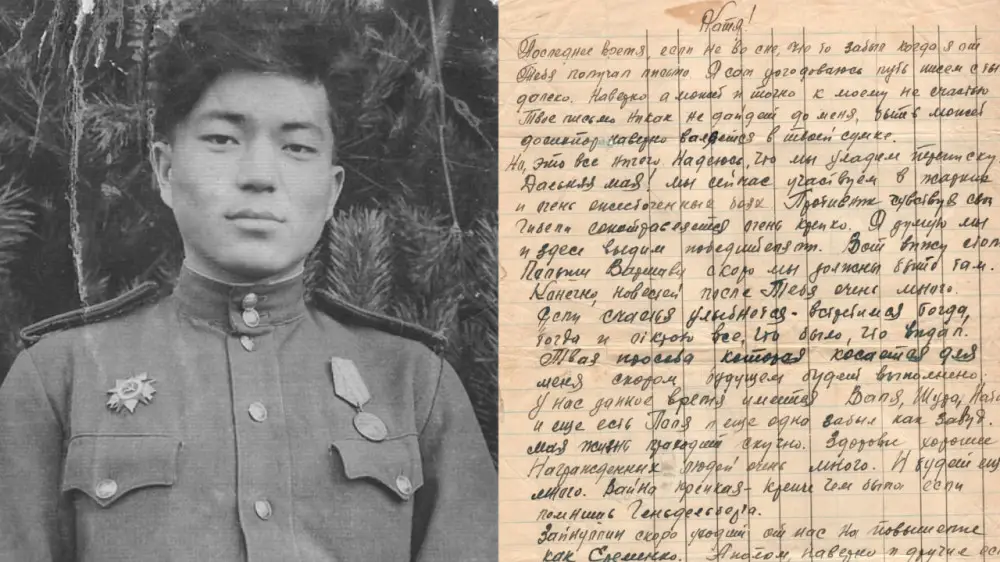 Катя!
Последнее время, если не во сне, что то забыл когда я от
Тебя получал письмо. Я сам догодоваюсь путь писем с ты
далеко. Наверно а может и точно к моему не счастью
Твое письмо никак не дайдет до меня, быть может
наверно валяется в твоей сумке.
Но, это все ничего. Надеюсь, что мы уладим переписку.
мая! мы сейчас участвуем в жарких
и очень ожесточенных боях. Противник чувствуя свою
гибель очень крепко. Я думую мы
и здесь выдим победителями. Вот вижу
Польши Варшава скоро мы должны быть там.
Канечно, новостей после Тебя очень много.
Если счастья улыбнется - встретимся тогда,
тогда и открою все, что было, что видал.
Твая просьба которая косается для
меня скором будущем будет выполнено.
У нас данное время имеется Валя, Шура, 
и еще есть Поля и еще одно забыл как завут.
мая жизнь праходит скучно. Здоровье хорошее
Награжденных людей очень много. И будет ещ
много. Вайна крепкая - крепче чем была если
помнишь
скоро уходит от нас на повышение
как Еременко. А потом, наверно и другие ес